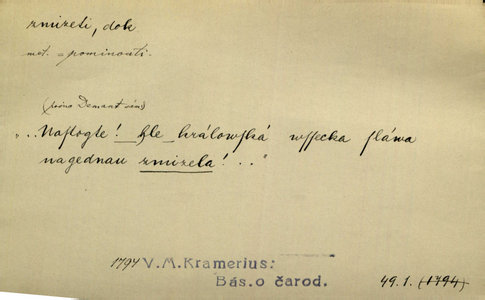 zmizeti, dok
met. = pominouti.
„..Nastogte! Hle králowská wssecka sláwa
nagednau zmizela!..."
1794 V.M.Kramerius:
Bás.o čarod.
49.1. (1794)